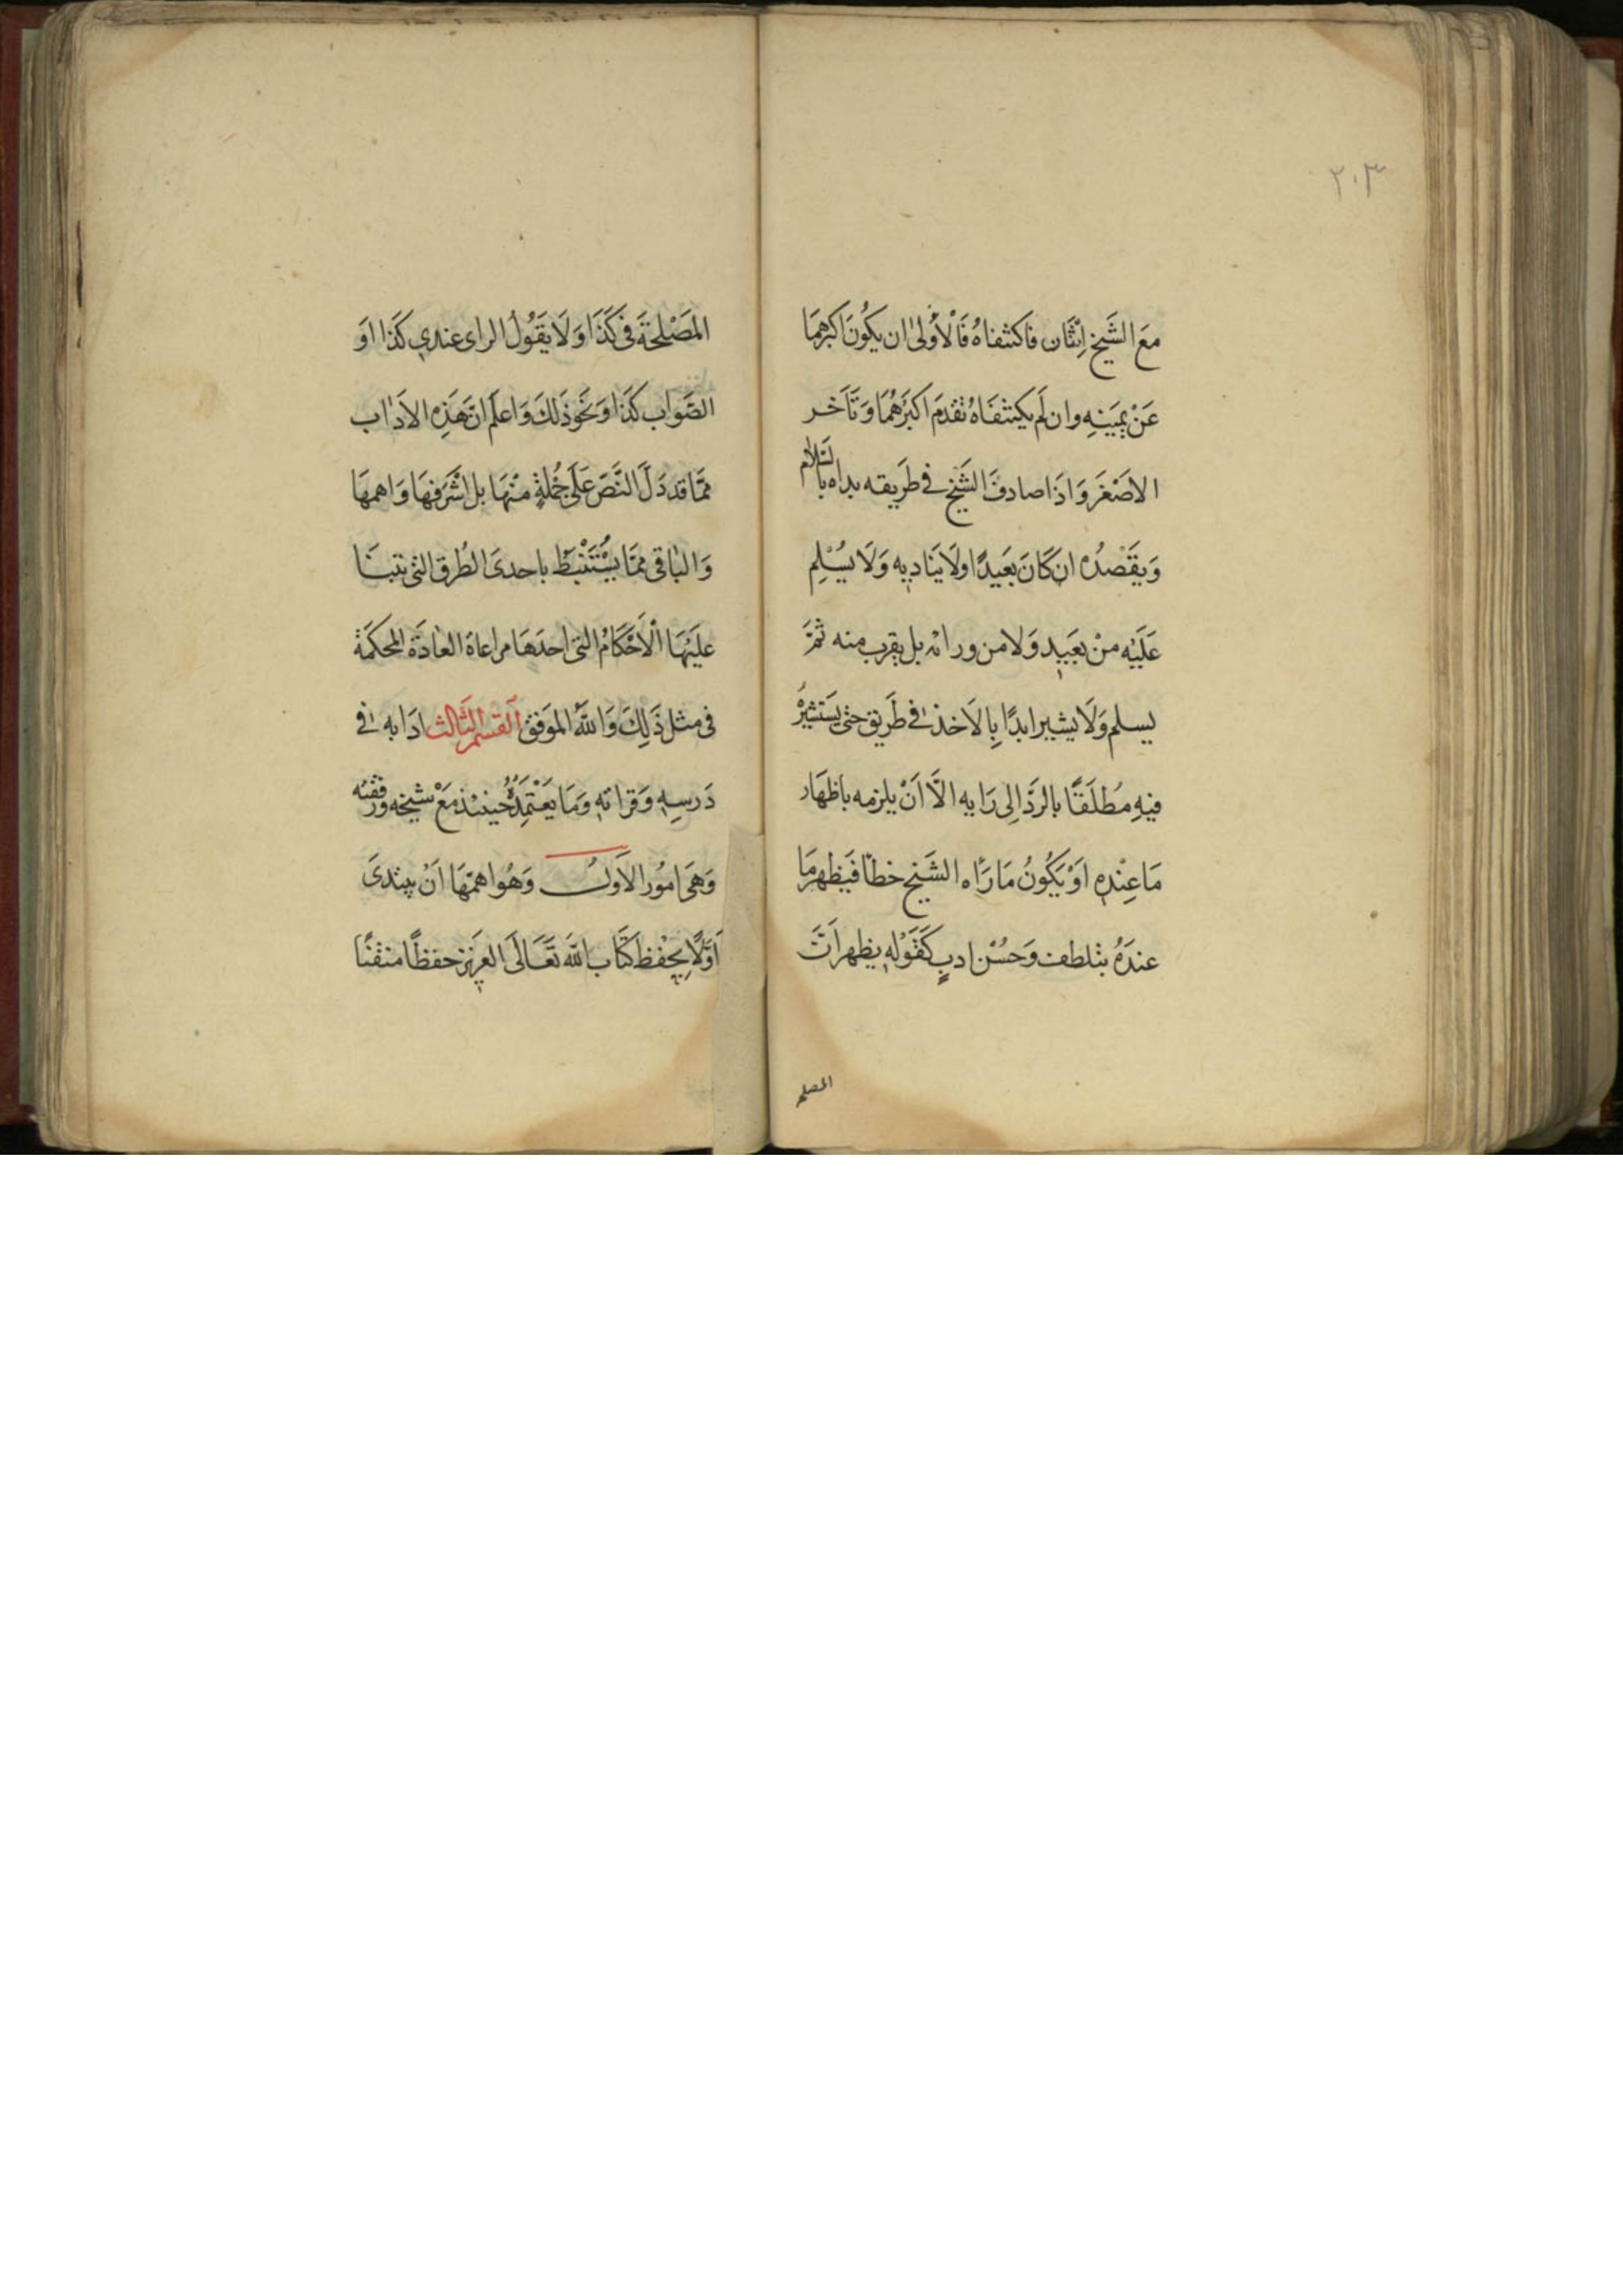 ٢٠٣
مَعَ الشَّيخِ اِثنَان فاكتنفاهُ فَالْأَوْلىٰ ان يكُونَ اكبرهمَا
عَنْ يَمِينِهِ وان لَم يكتنفَاهُ تقدمَ اكبَرُهُمَا وَتَأَخر
الاصْغَر وَاذَا صادفَ الشَّيخ في طَريقه بداه بالسَّلام
وَيقْصدُه ان كَانَ بَعَيدًا ولَا يَناديه وَلَا يُسَلِم
عَلَيْه منْ بَعَيدٍ وَلا من ورائه بل يقرب منه ثمَّ
يسلم وَلَا يشير ابدًا بِالاَخذ في طَريق حتى يَستشيرُ
فيهِ مُطلَقًا بالردَّ الِى رَايه الَّا اَنْ يلزمه باظهَار
مَا عِنْده اَوْ يَكُونُ مَا رَأه الشَّيخ خطأ فَيَظهر مَا
عندَهُ بتلطف وَحُسْن ادبٍ كَقَوْله يظهر اَنَّ
المصلحة
المَصْلحَة فى كَذَا وَلَا يَقُولُ الراى عندي كَذا اوَ
الصَّوَاب كَذا وَنَحَو ذَلكَ وَاعلَم انَّ هَذِه الاَدٰاب
ممَّا قد دَلَّ النَّصَ عَلَى جُملةٍ منْهَا بل اشْرَفهَا وَاهمهَا
وَالبٰاقى ممَّا يسُتَنْبَطُ باحدىَ الطُرق التى تبنَا
عَليَهَا الْاَحْكَامُ التى احدَهَا مراعاة العٰادَة المحكمَة
فى مثل ذَلِكَ وَاللّهُ الموَفق اَلقسم الثَالث ادَابه فى
دَرسِهِ وَقرائتهِ وَمَا يَعْتَمِدُهُ حينئذ مَعَ شيخه ورفقته
وَهىَ امُور الاَولُ وَهُوا همّهَا اَنْ يبتدىَ
اَوَّلًا بِحْفظ كتَاب اللّهَ تَعَالَى العَزيز حفظًا متقنًا